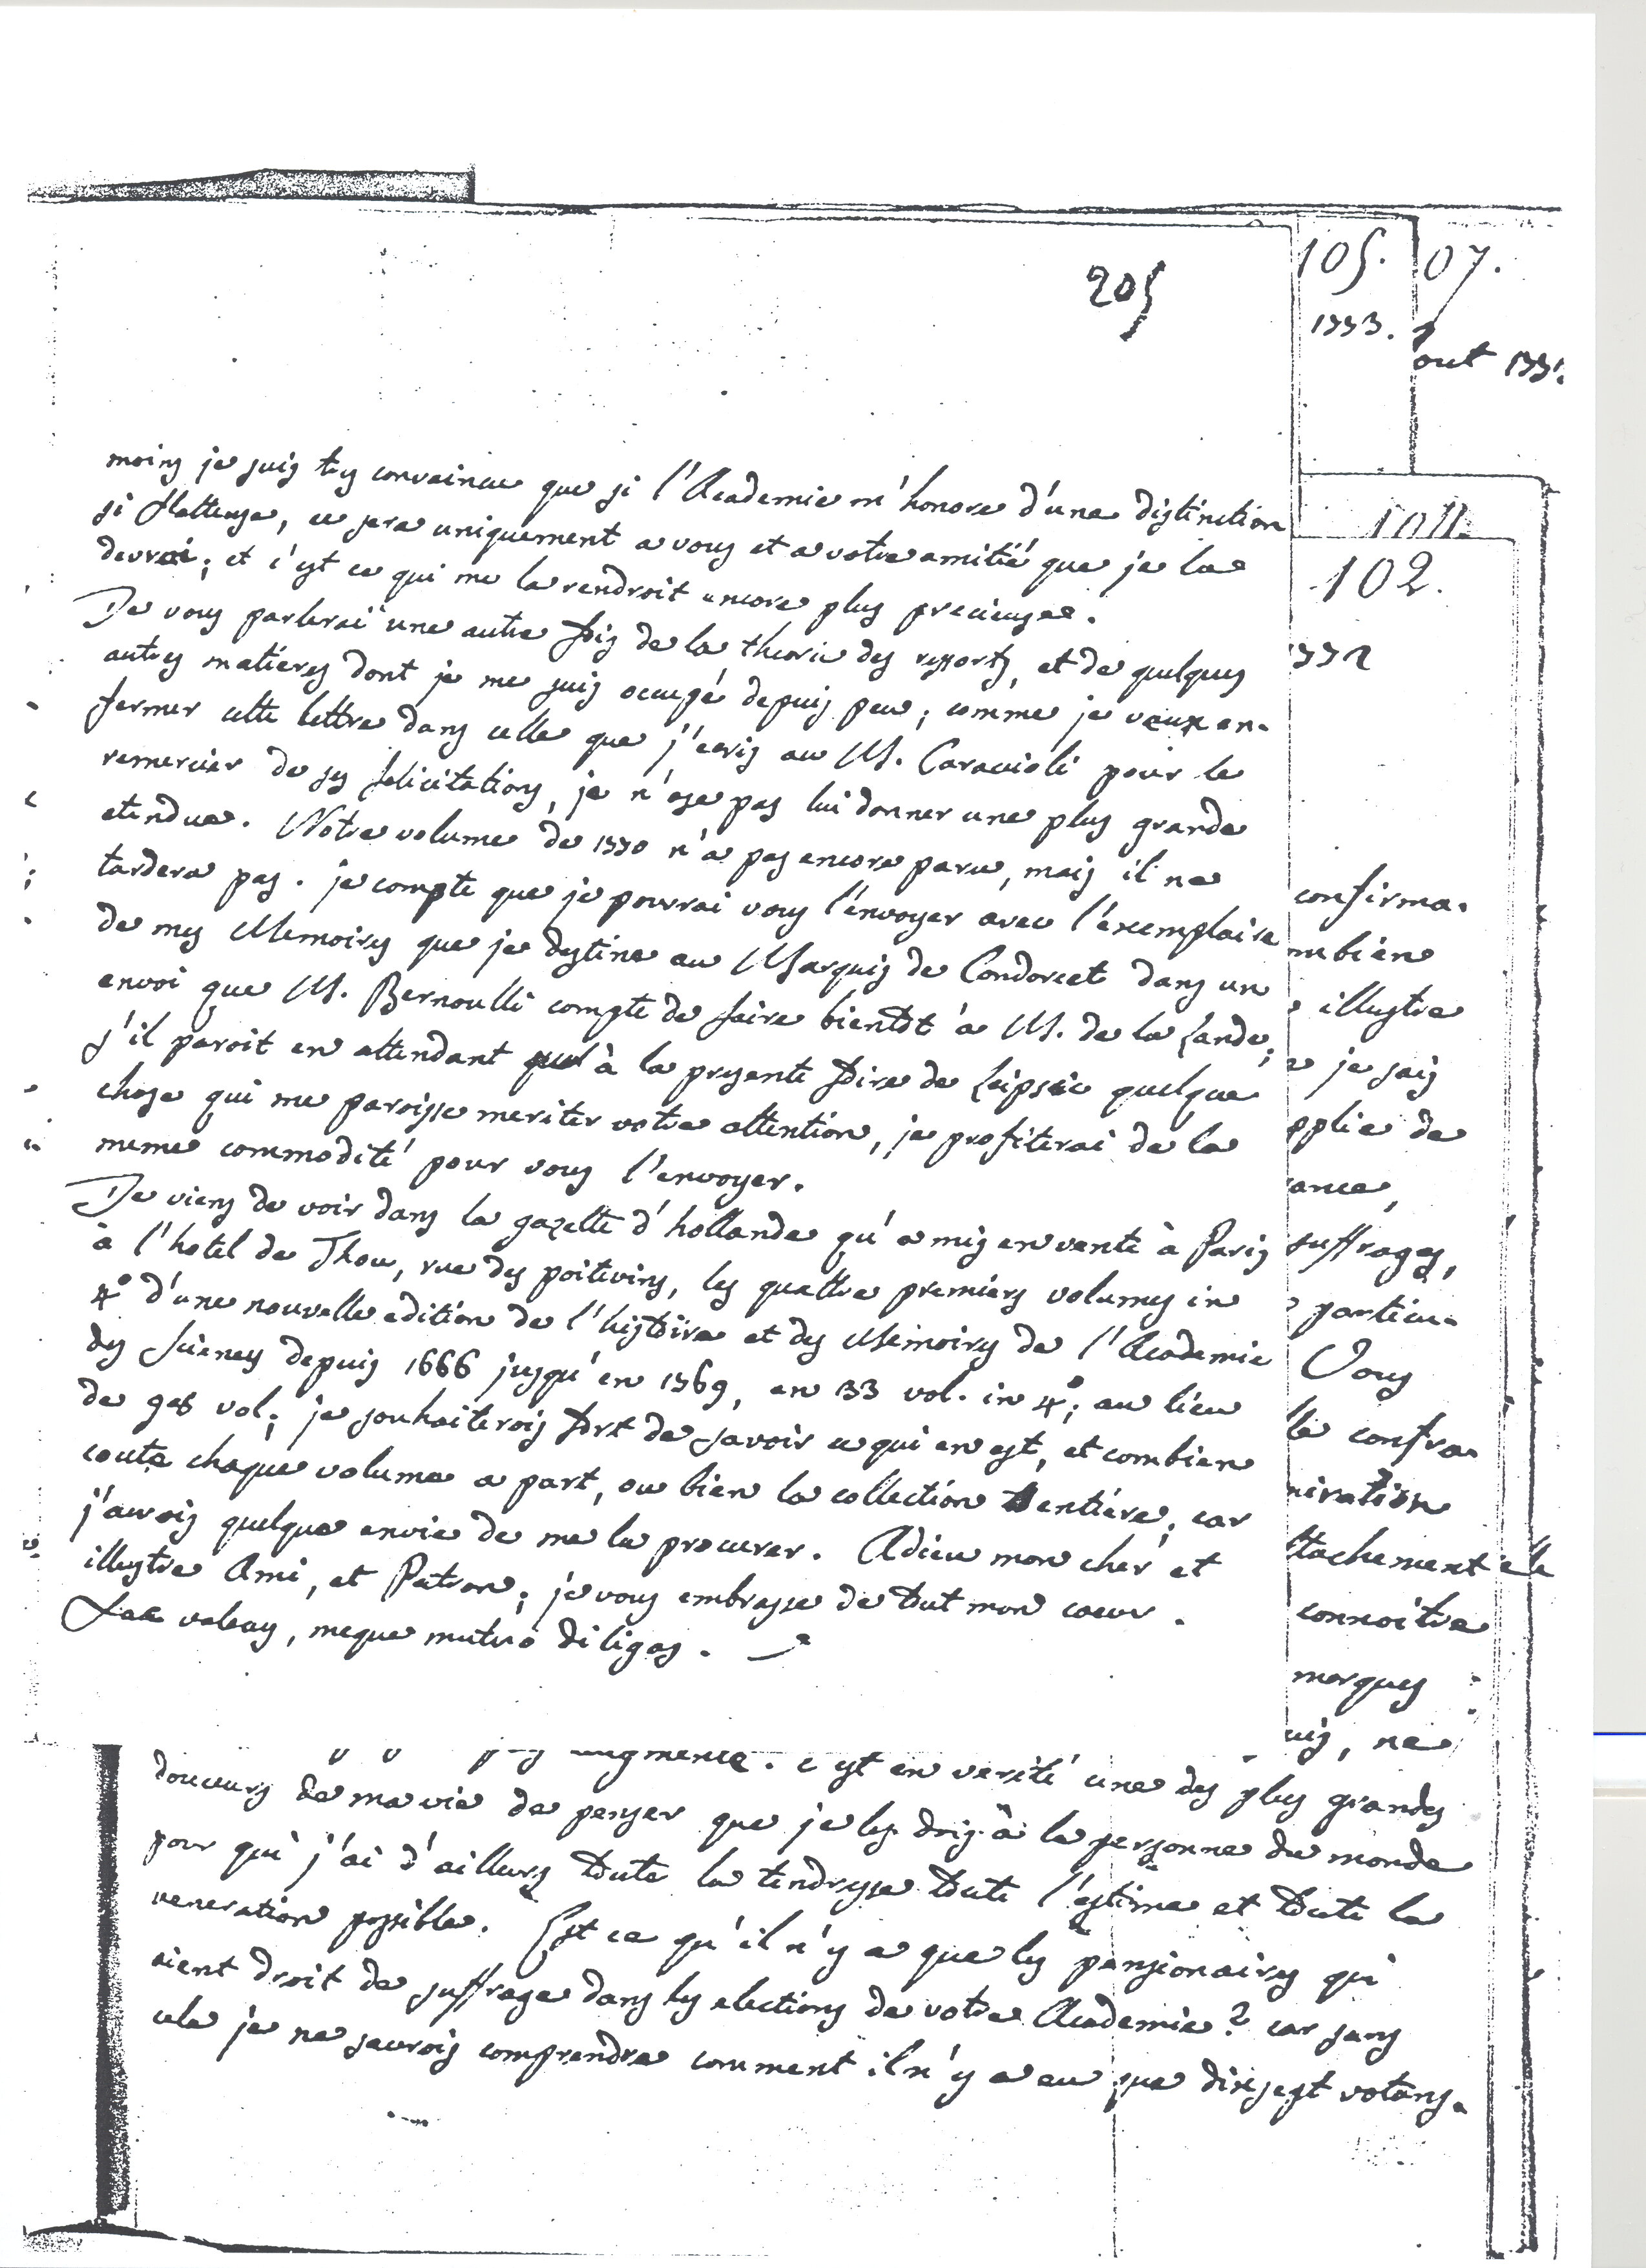 205
105.
07.
1773.
out 177
moins je suis tres convaincu que si l'Academie m'honore d'une distinction
si flatteuse, ce sera uniquement a vous et a votre amitié que je la
devrai; et c'est ce qui me la rendroit encore plus precieuse.
Je vous parlerai une autre fois de la theorie des ressorts, et de quelques
autres matieres dont je me suis occupé depuis peu; comme je veux en-
fermer cette lettre dans celle que j'ecris au M. Caraccioli pour le
remercier de ses felicitations, je n'ose pas lui donner une plus grande
etendue. Notre volume de 1770 n'a pas encore paru, mais il ne
tardera pas. je compte que je pourrai vous l'envoyer avec l'exemplaire
de mes Memoires que je destine au Marquis de Condorcet dans un
envoi que M. Bernoulli compte de faire bientot à M. de la Lande;
s'il paroit en attendant à la presente foire de Leipsic quelque
chose qui me paroisse meriter votre attention, je profiterai de la
meme commodité pour vous l'envoyer.
Je viens de voir dans la gazette d'hollande qu'a mis en vente à Paris
à l'hotel de Thou, rue des poitevins, les quattre premiers volumes in
4° d'une nouvelle edition de l'histoire et des Memoires de l'Academie
des Sciences depuis 1666 jusqu'en 1769, en 33 vol. in 4°; au lieu
de 98 vol; je souhaiterois fort de savoir ce qui en est, et combien
coute chaque volume a part, ou bien la collection entiére, car
j'aurois quelque envie de me la procurer. Adieu mon cher et
illustre Ami, et Patron; je vous embrasse de tout mon coeur.
valeas, meque mutuo diligas.
102.
1772
confirma-
mbien
illustre
e je sais
pplie de
ance,
suffrages,
particu-
Vous
le confra-
miration
ttachement
connoitre
marques
uis, ne
augmente. c'est en verité une des plus grandes
douceurs de ma vie de penser que je les dois à la personne du monde
pour qui j'ai d'ailleurs toute la tendresse toute l'estime et toute la
veneration possible. Est ce qu'il n'y a que les pensionaires qui
aient droit de suffrage dans les elections de votre Academie? car sans
cela je ne saurois comprendre comment il n'y a eu que dixsept votans.